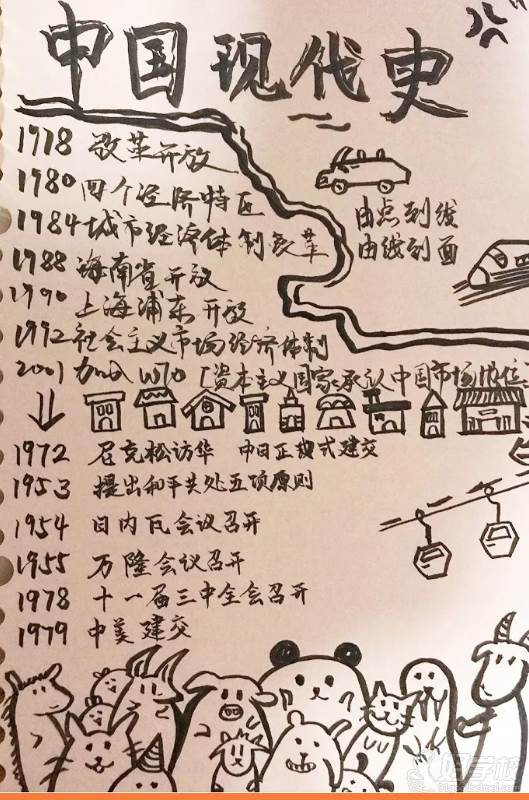 中国现代史
1978 改革开放
1980 四个经济特区
1984 城市经济体制改革
由点到线
由线到面
1988 海南省开放
1990 上海浦东开放
1992 社会主义市场经济体制
2001 加入WTO [资本主义国家承认中国市场地位]
1972 尼克松访华 中日正式建交
1953 提出和平共处五项原则
1954 日内瓦会议召开
1955 万隆会议召开
1978 十一届三中全会召开
1979 中美建交
好学校